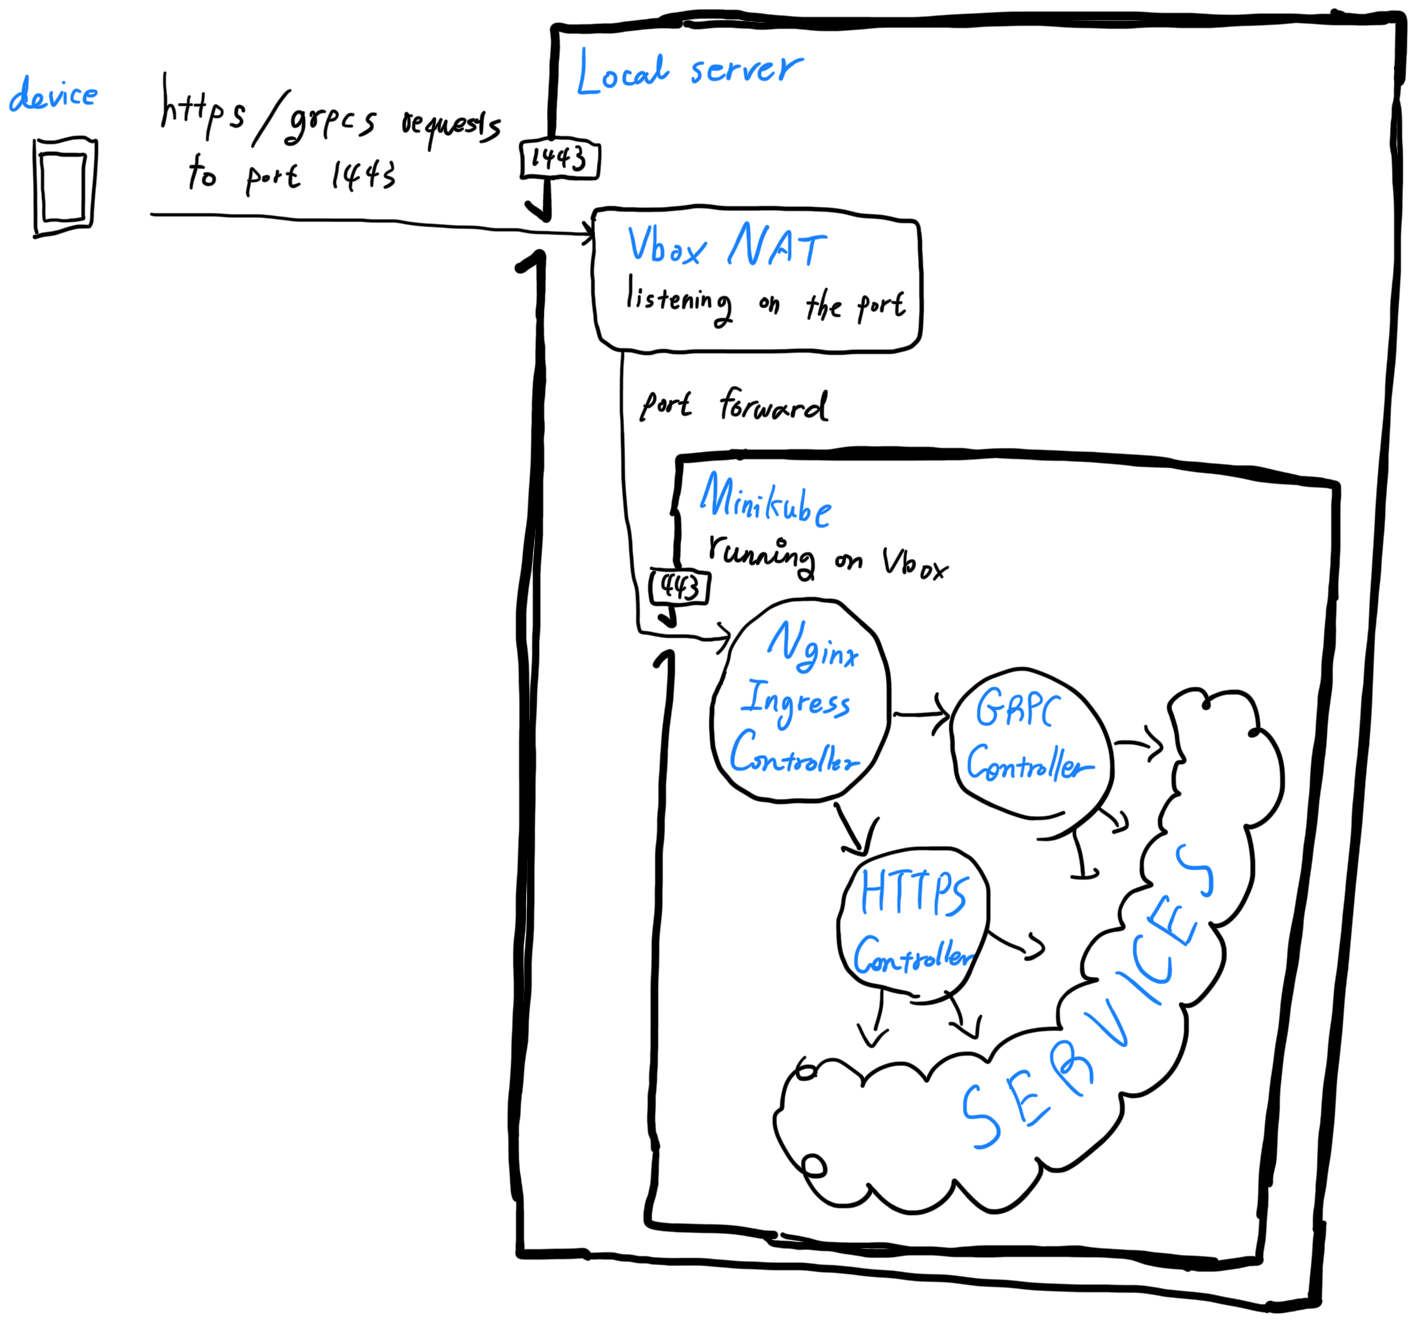 device
https/grpcs requests
to port 1443
Local server
1443
Vbox NAT
listening on the port
port forward
Minikube
running on Vbox
443
Nginx
Ingress
Controller
GRPC
Controller
HTTPS
Controller
SERVICES